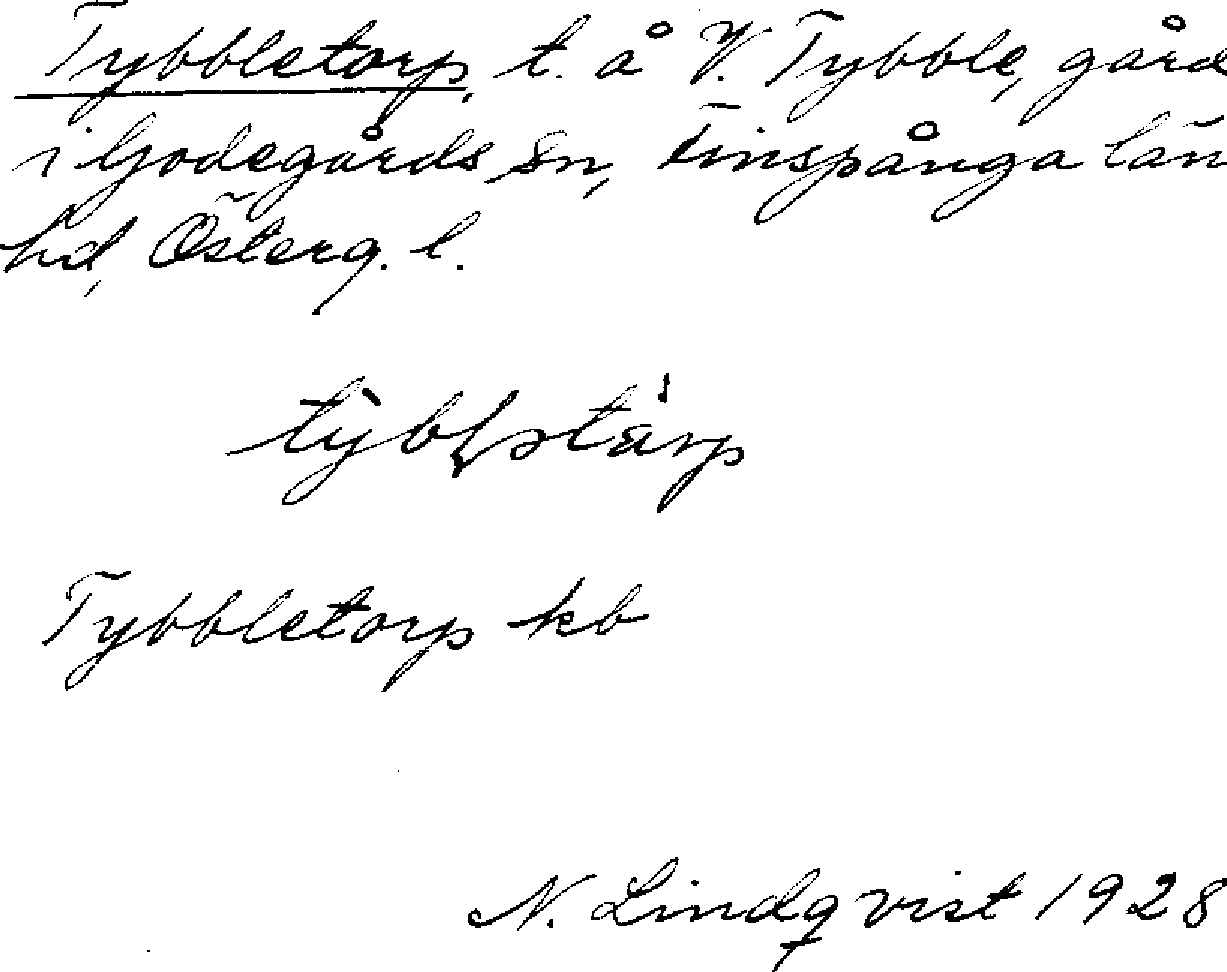 Tybbletorp, t. å V. Tybble, gård
i Godegårds sn, Finspånga län
hd, Österg. l.
Tybbletorp kb
N. Lindqvist 1928